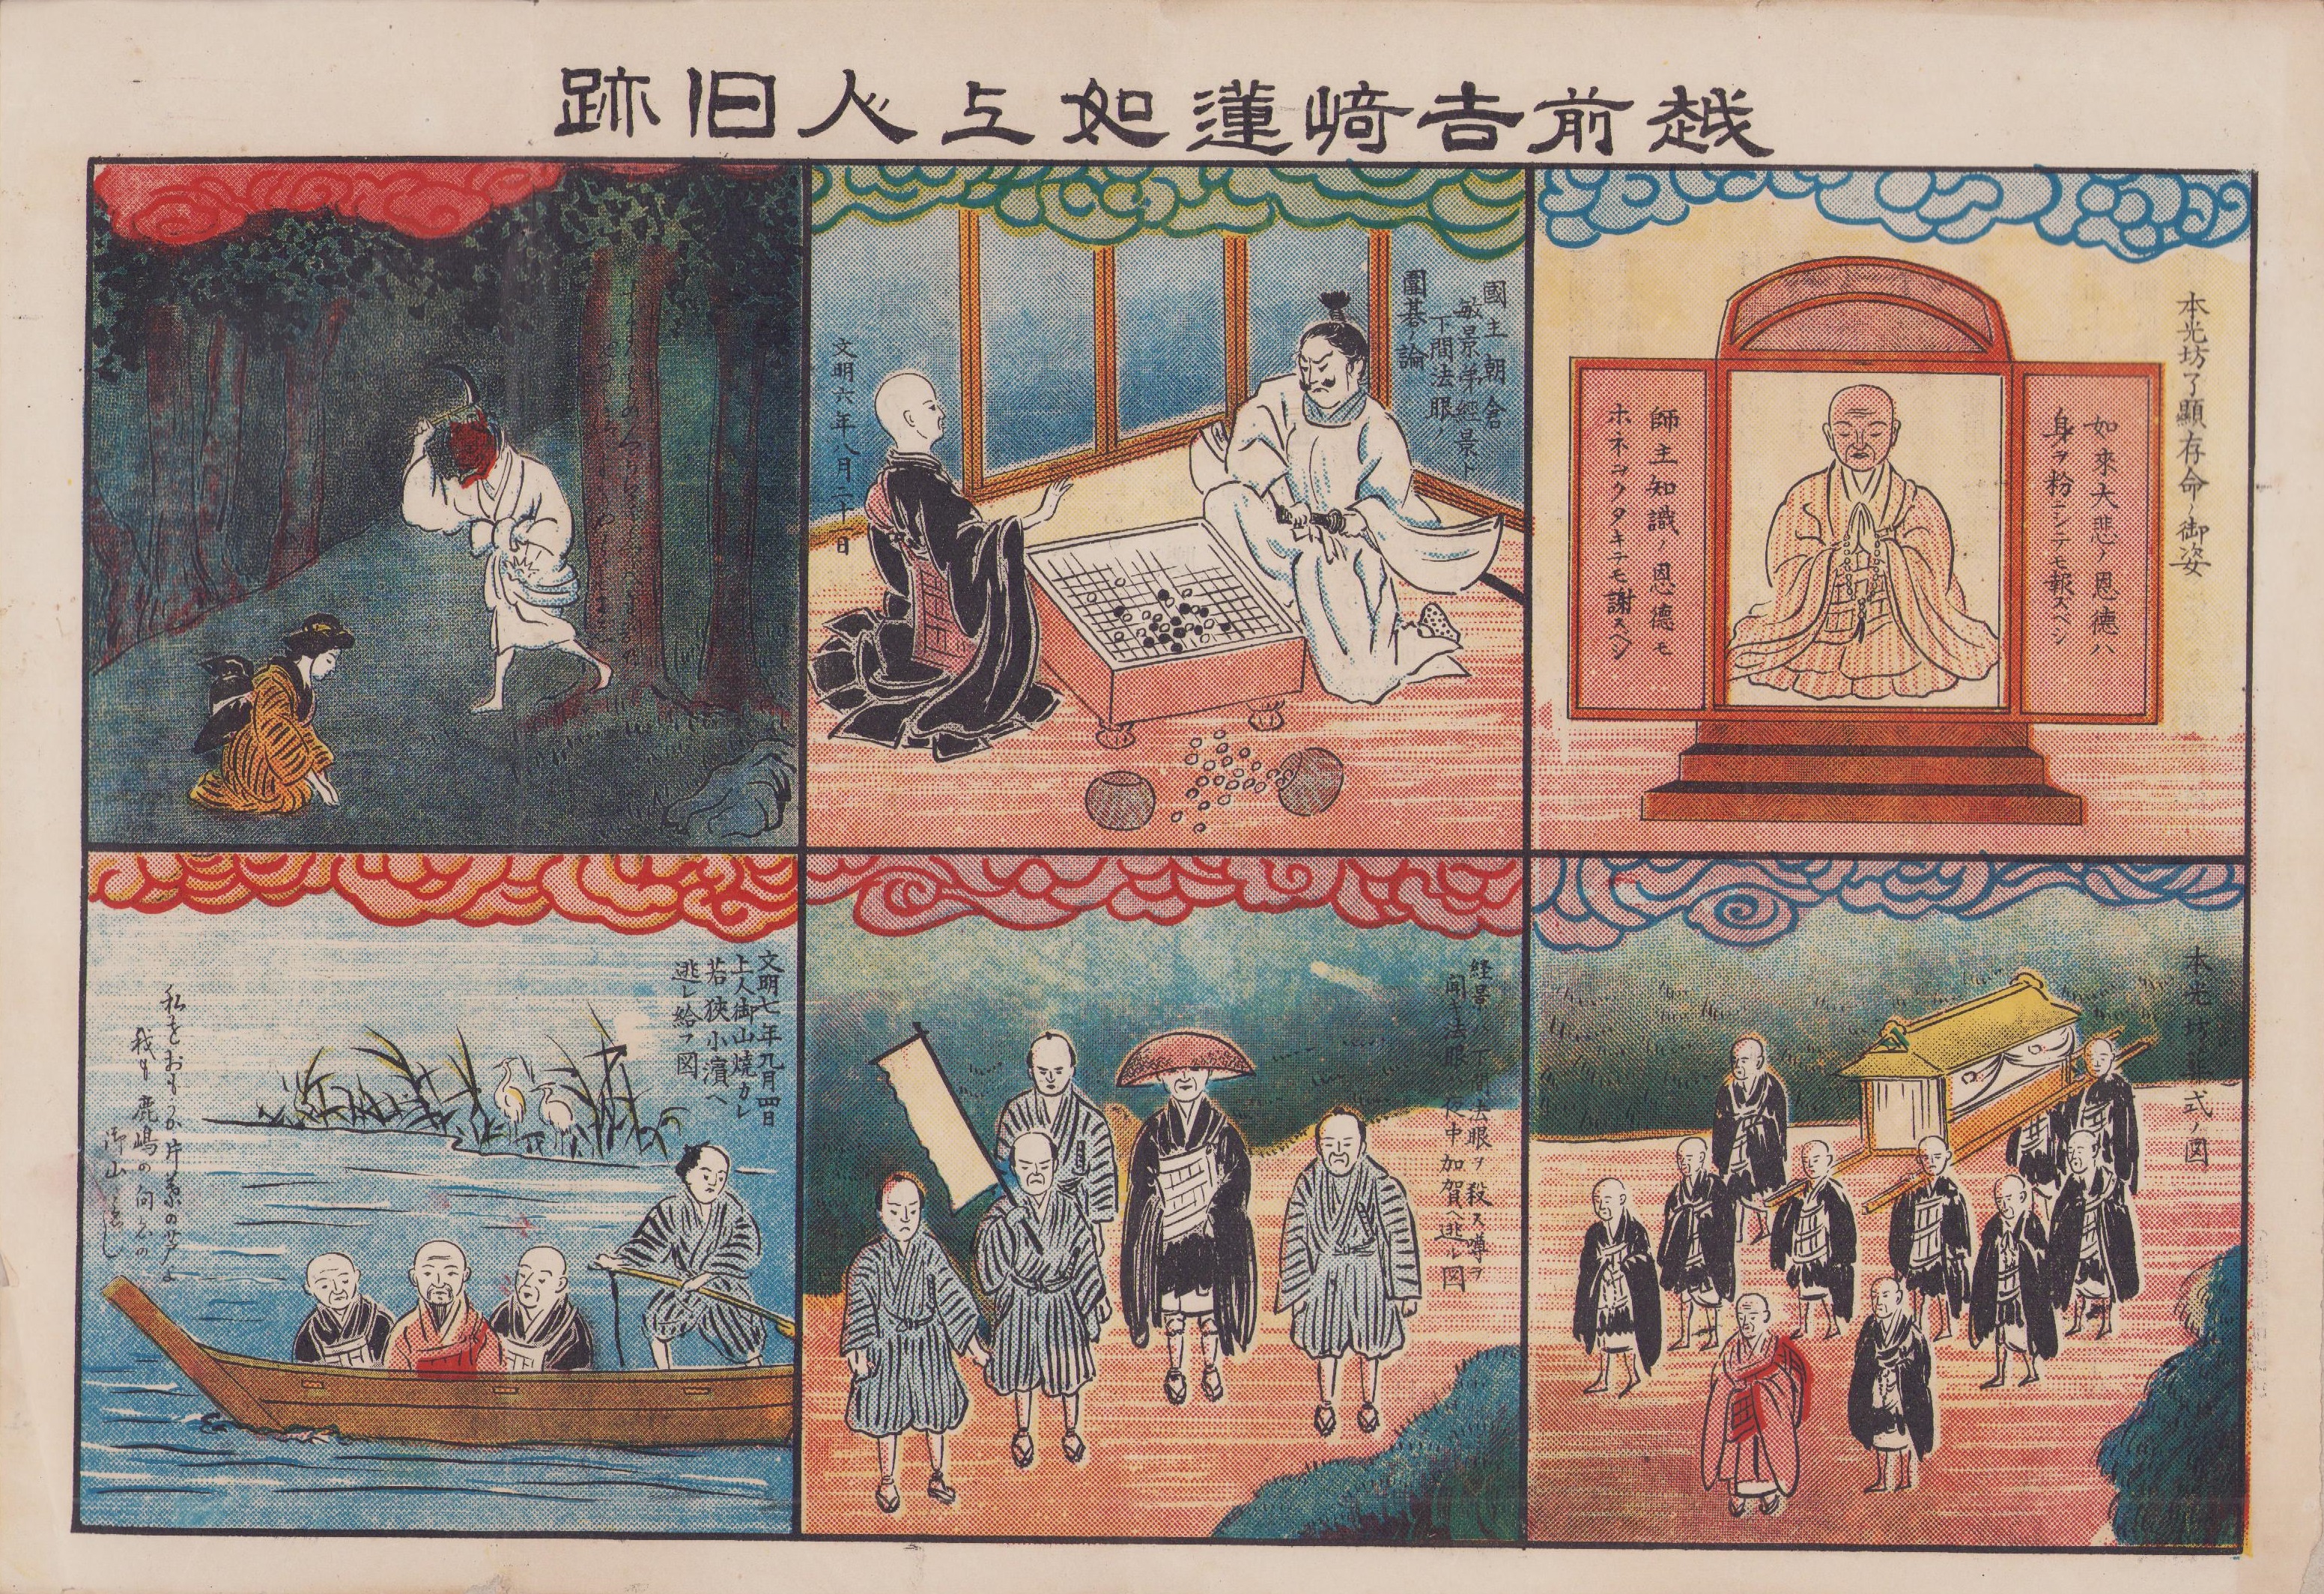 越前吉﨑蓮如上人旧跡
本光坊了顯存命ノ御姿
如來大悲ノ恩德ハ
身ヲ粉ニシテモ報スベシ
師主知識ノ恩德モ
ホネヲクタキテモ謝スベシ
國主朝倉
敏景弟經景ト
下間法眼ノ
圍碁ノ論
文明六年八月二十一日
本光坊葬式ノ図
経景ハ下間法眼ヲ殺ス噂ヲ
聞キ法眼夜中加賀ヘ逃レ図
文明七年九月四日
上人御山燒カレ
若狹小濵ヘ
逃レ給フ図
私をおもはゞ片葉のせ戸よ
我は鹿嶋の向ひの
御山こひし